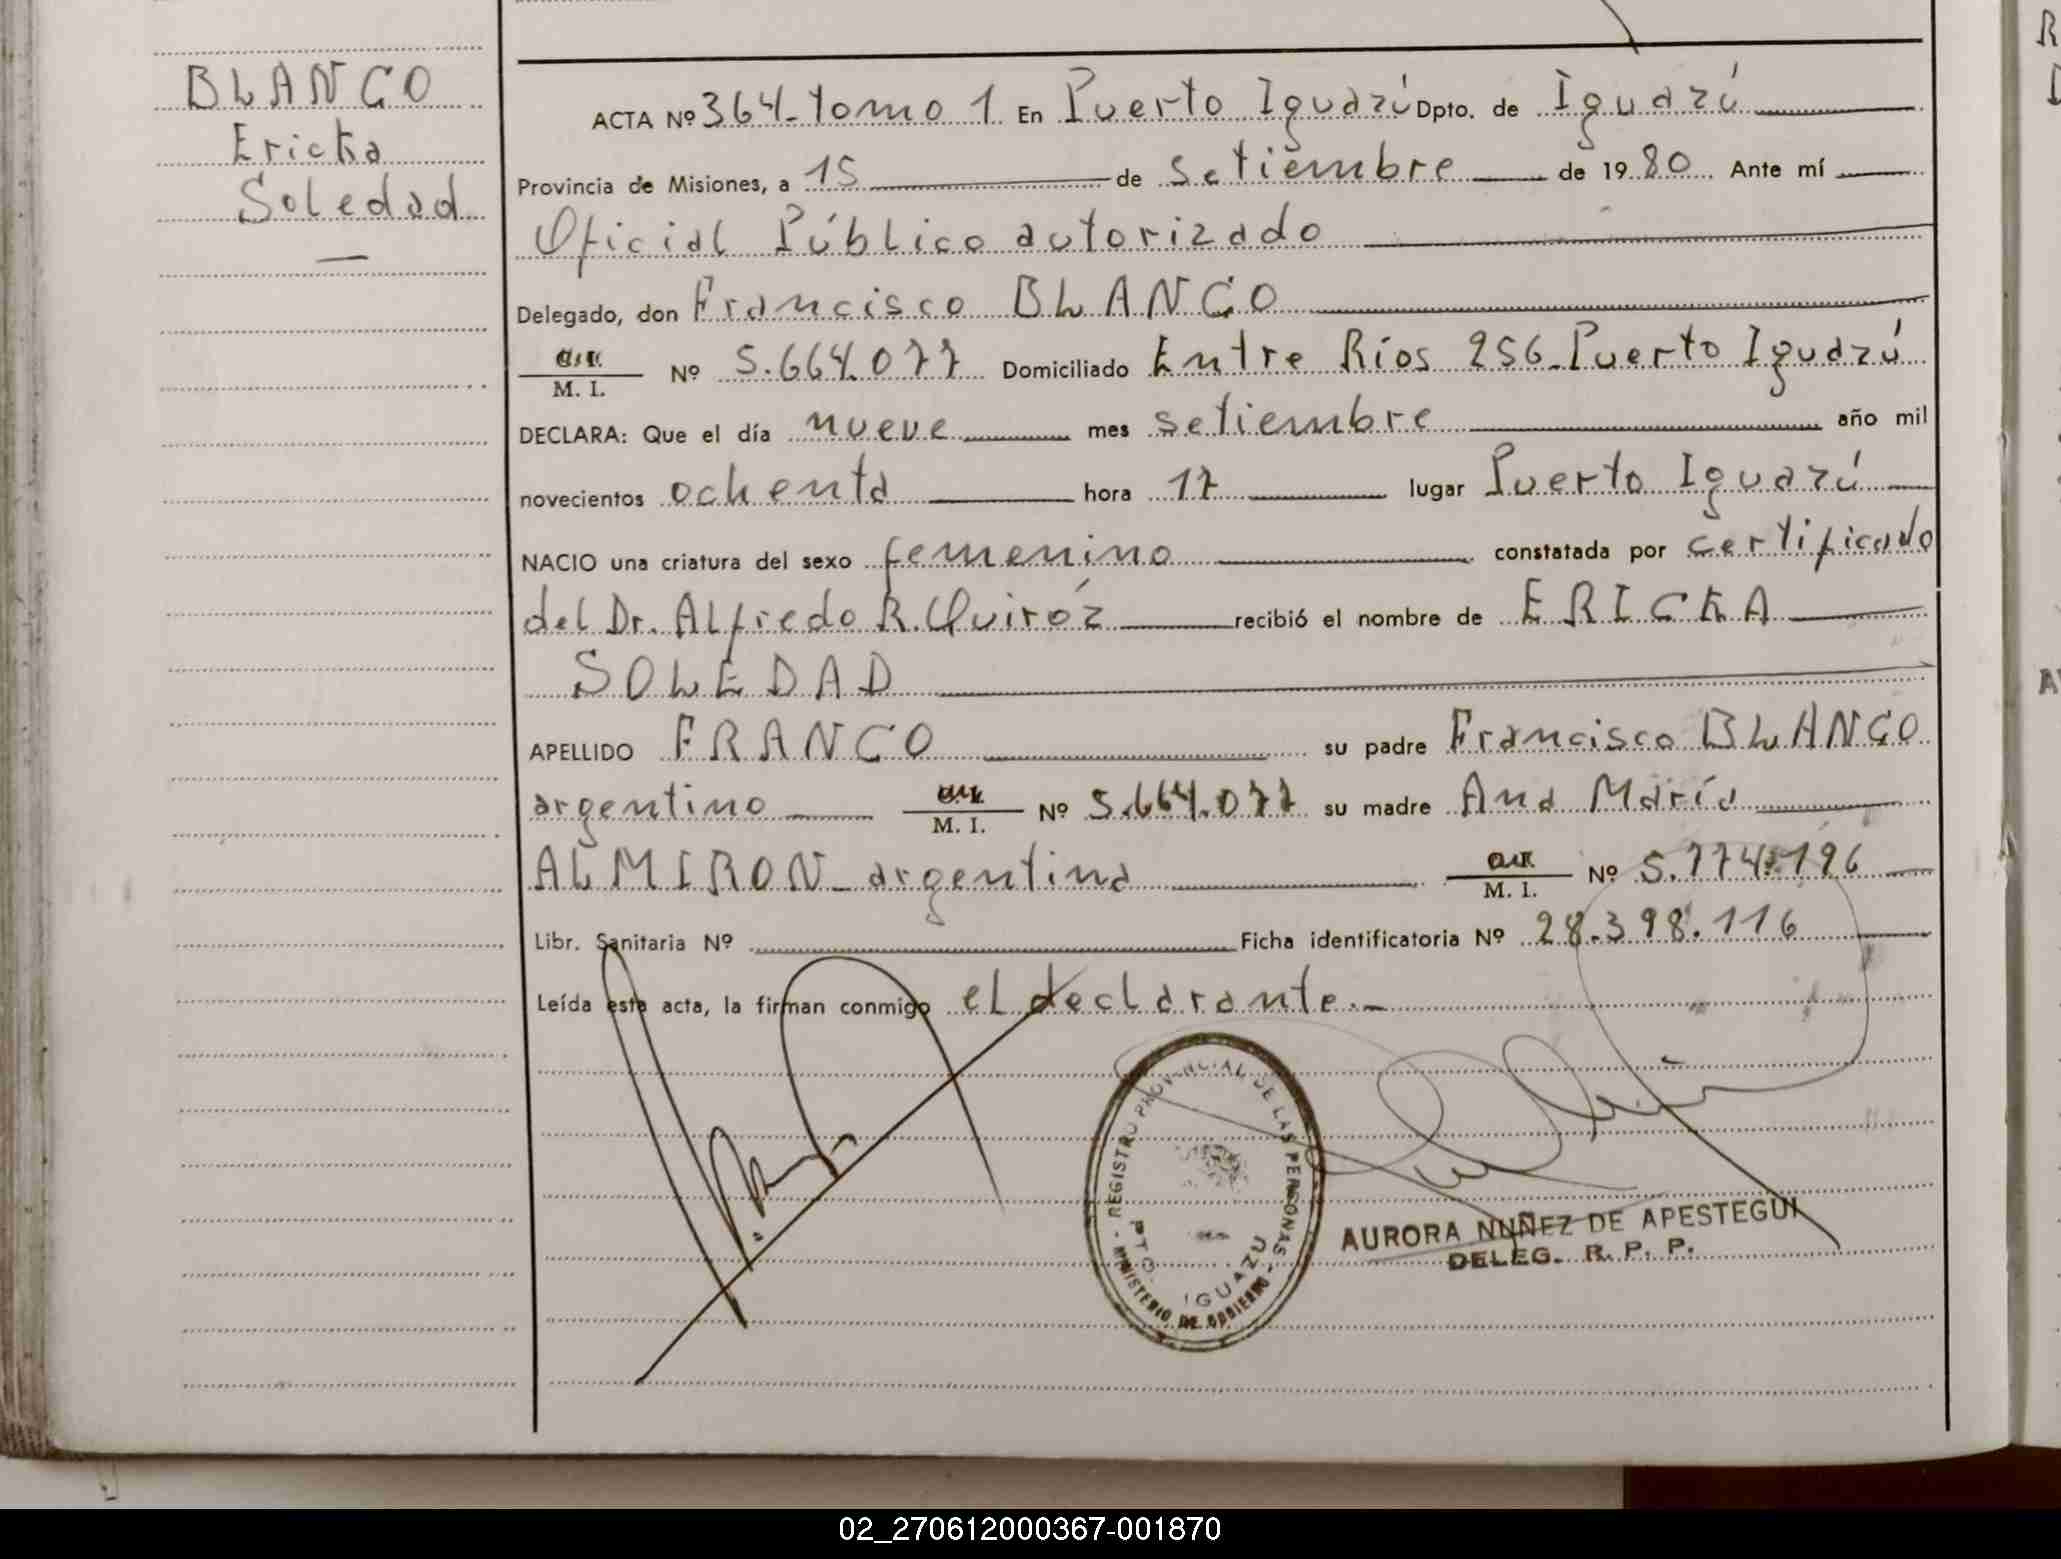 BLANCO
Ericka
Soledad
ACTA Nº 364- tomo 1 En Puerto Iguazú Dpto. de Iguazú
Provincia de Misiones, a 15 de setiembre de 1980 Ante mí
Oficial Público autorizado
Delegado, don Francisco BLANCO
M. I. Nº 5.664.077 Domiciliado Entre Ríos 256-Puerto Iguazú
DECLARA: Que el día nueve mes setiembre año mil
novecientos ochenta hora 17 lugar Puerto Iguazú
NACIO una criatura del sexo femenino constatada por certificado
del Dr. Alfredo R. Quiróz recibió el nombre de ERICKA
SOLEDAD
APELLIDO FRANCO su padre Francisco BLANCO
argentino M. I. Nº 5.664.077 su madre Ana María
ALMIRON- argentina M. I. Nº 5.774.196
Libr. Sanitaria Nº Ficha identificatoria Nº 28.398.116
Leída esta acta, la firman conmigo el declarante.-
- REGISTRO PROVINCIAL DE LAS PERSONAS -
MINISTERIO DE GOBIERNO
PTO. IGUAZU
AURORA NUÑEZ DE APESTEGUI
DELEG. R. P. P.
02_270612000367-001870